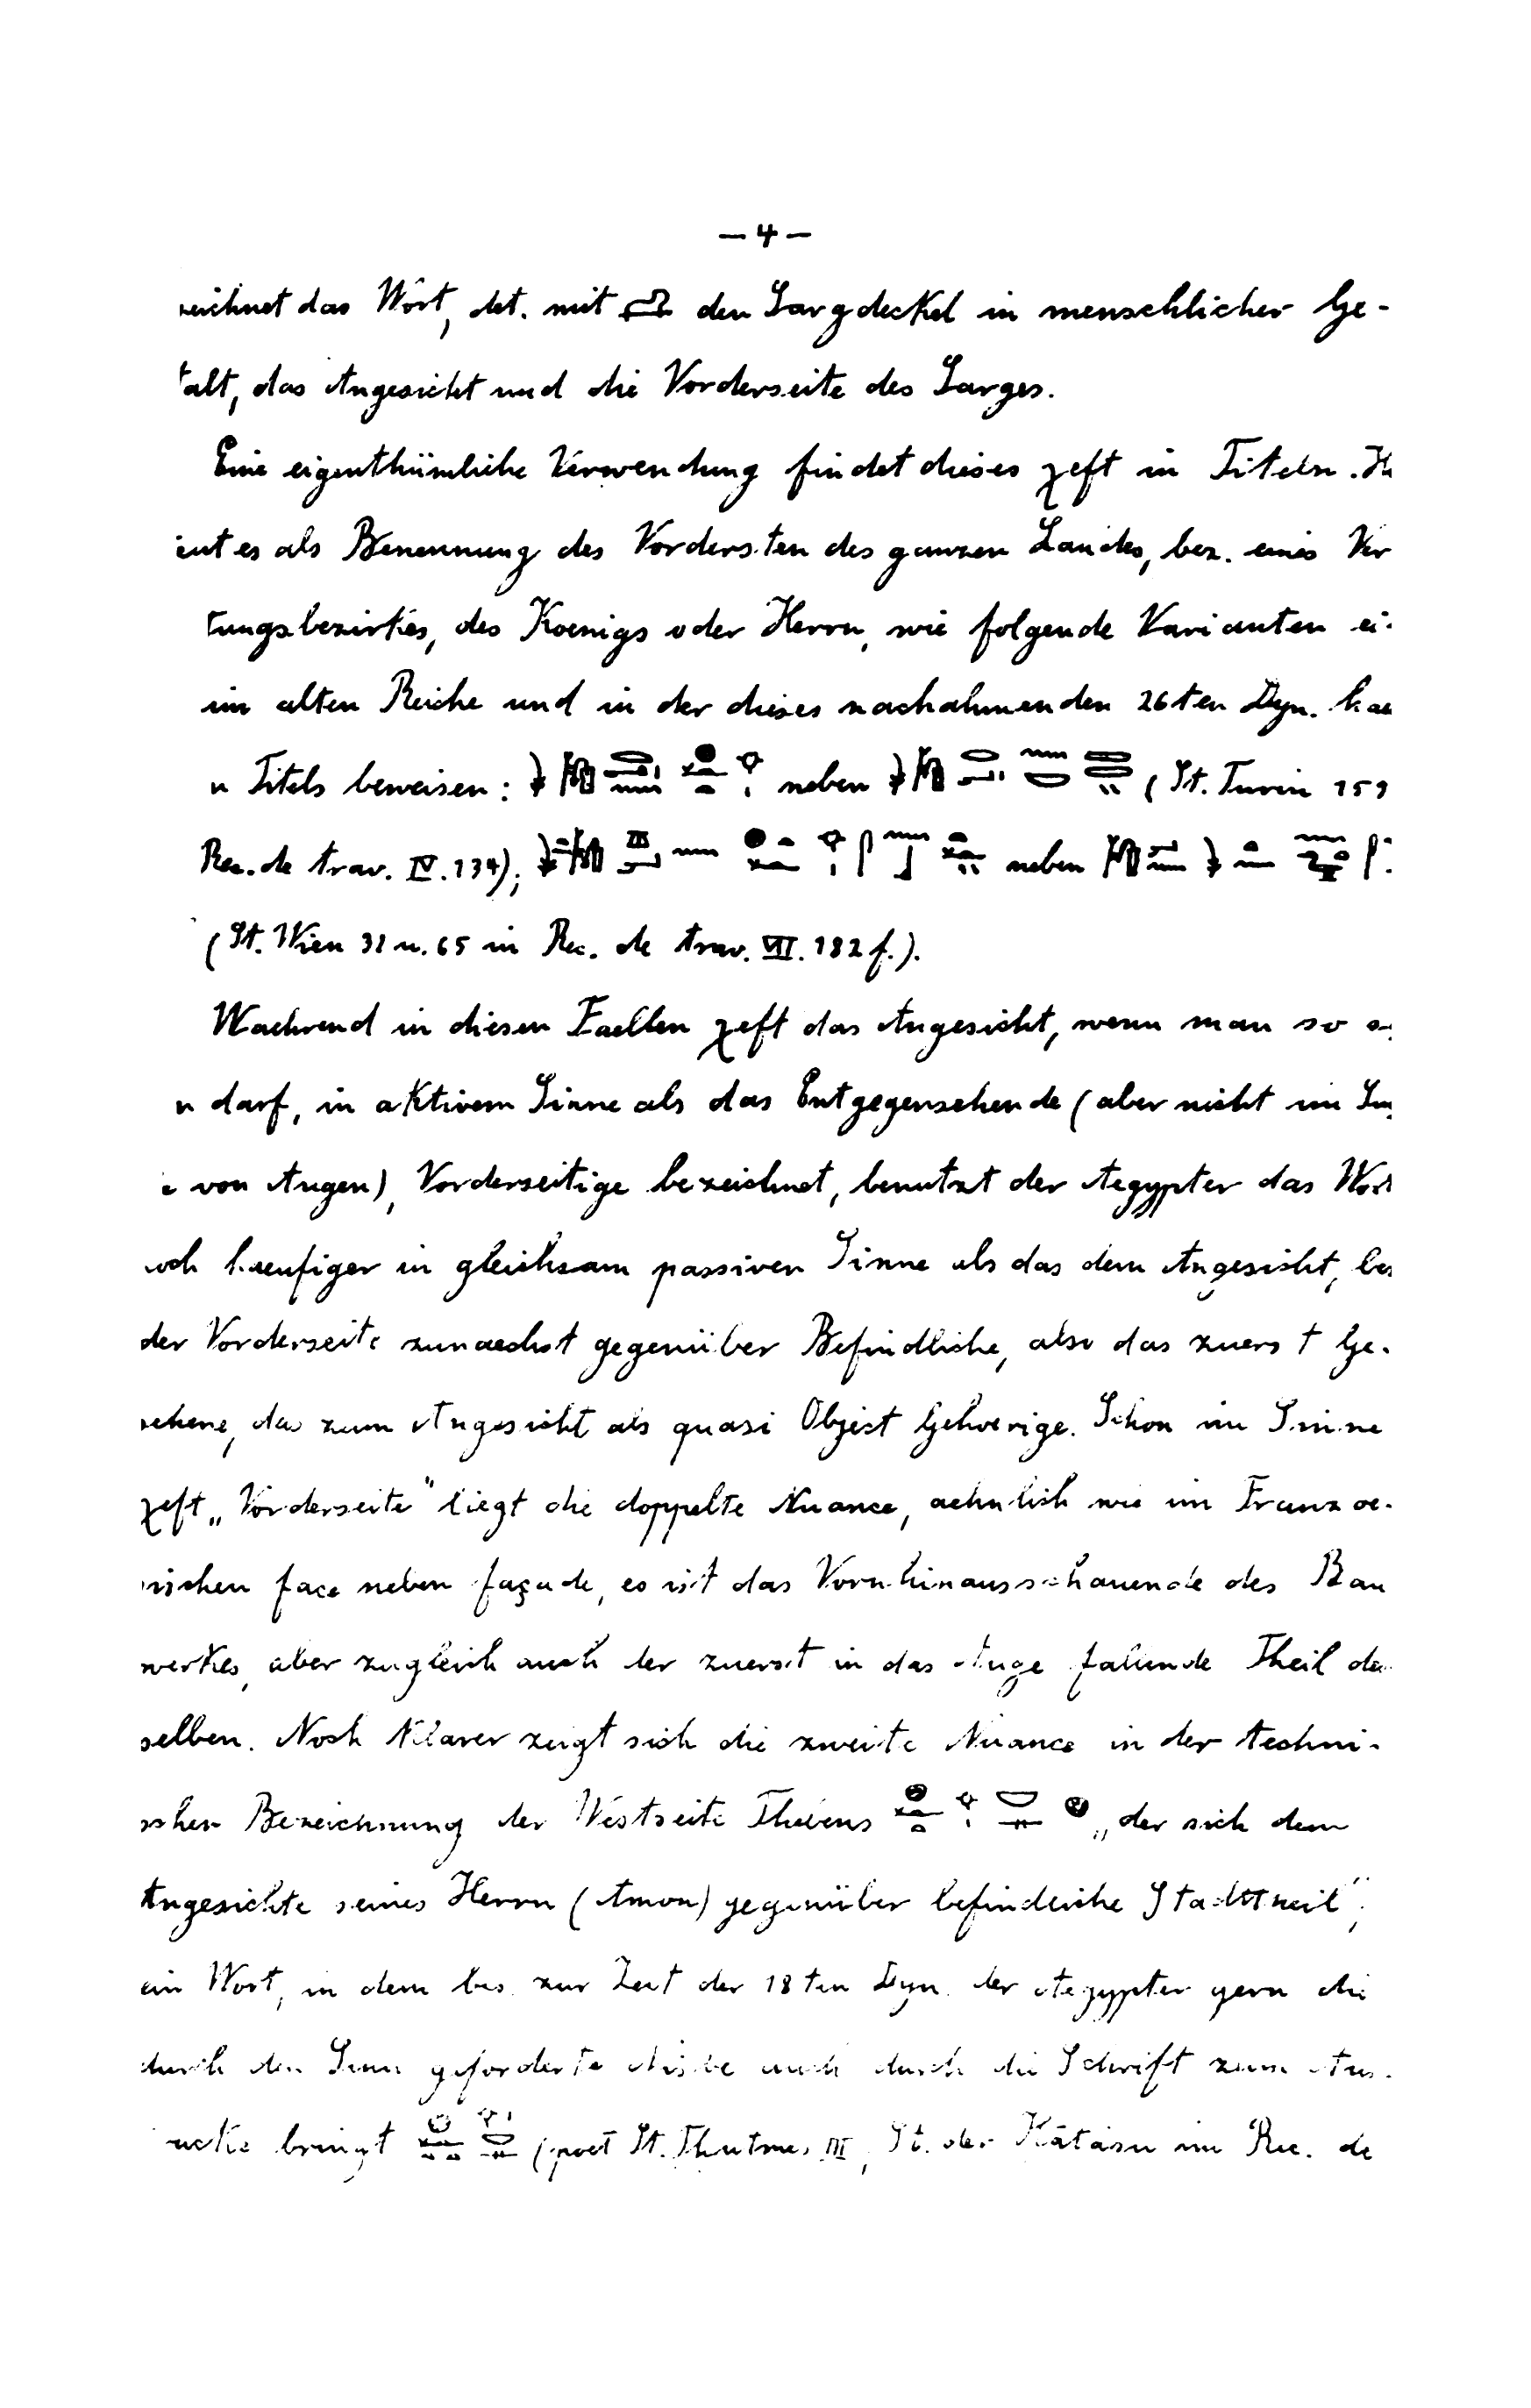 — 4 —
zeichnet das Wort, det. mit den Sargdeckel in menschlicher Ge-
talt, das Angesicht und die Vorderseite des Sarges.
Eine eigenthümliche Verwendung findet dieses χeft in Titeln.
ent es als Benennung des Vordersten des ganzen Landes, bez. eines Ver
tungsbezirkes, des Koenigs oder Herrn, wie folgende Varianten ei
im alten Reiche und in der dieses nachahmenden 26ten Dyn. hae
n Titels beweisen: neben (St. Turin 159
Rec. de trav. IV. 134); neben
(St. Wien 31 u. 65 in Rec. de trav. VII. 182 f.).
Waehrend in diesen Faellen χeft das Angesicht, wenn man so
n darf, in aktivem Sinne als das Entgegensehende (aber nicht im
e von Augen), Vorderseitige bezeichnet, benutzt der Aegypter das Wort
och haeufiger in gleichsam passiven Sinne als das dem Angesicht, bes
der Vorderseite zunaechst gegenüber Befindliche, also das zuerst Ge-
sehene, das zum Angesicht als quasi Object Gehoerige. Schon im Sinne
χeft „Vorderseite" liegt die doppelte Nuance, aehnlich wie im Franzoe-
sischen face neben façade, es ist das Vornhinausschauende des Bau
werkes, aber zugleich auch der zuerst in das Auge fallende Theil des
selben. Noch klarer zeigt sich die zweite Nuance in der techni-
schen Bezeichnung der Westseite Thebens „der sich dem
Angesichte seines Herrn (Amon) gegenüber befindliche Stadtteil",
ein Wort, in dem bis zur Zeit der 18ten Dyn. der Aegypter gern die
durch den Sinn geforderte Nisbe auch durch die Schrift zum Aus-
ucke bringt (poet St. Thutmes III, St. der Hātāsu im Rec. de